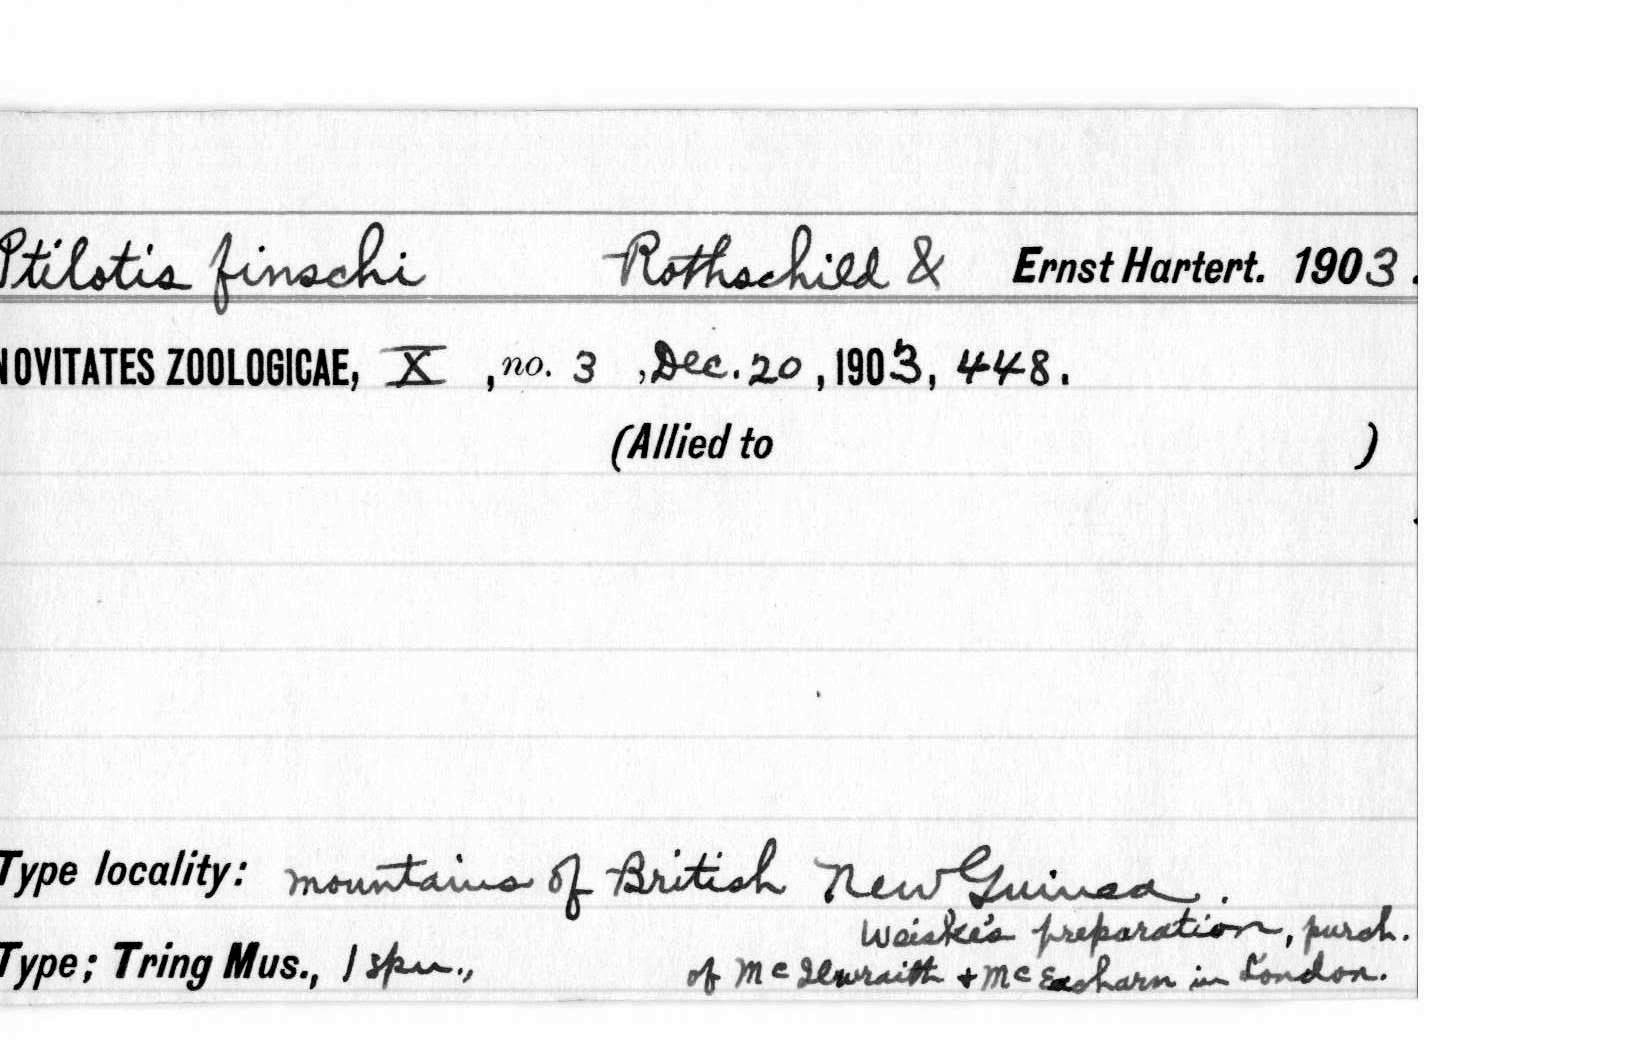 Ptilotis finschi Rothschild & Ernst Hartert. 1903.
NOVITATES ZOOLOGICAE, X, no. 3, Dec. 20, 1903, 448.
(Allied to )
Type locality: mountains of British New Guinea.
Weiske's preparation, purch.
Type; Tring Mus., 1 spm., of McIlwraith & McEacharn in London.